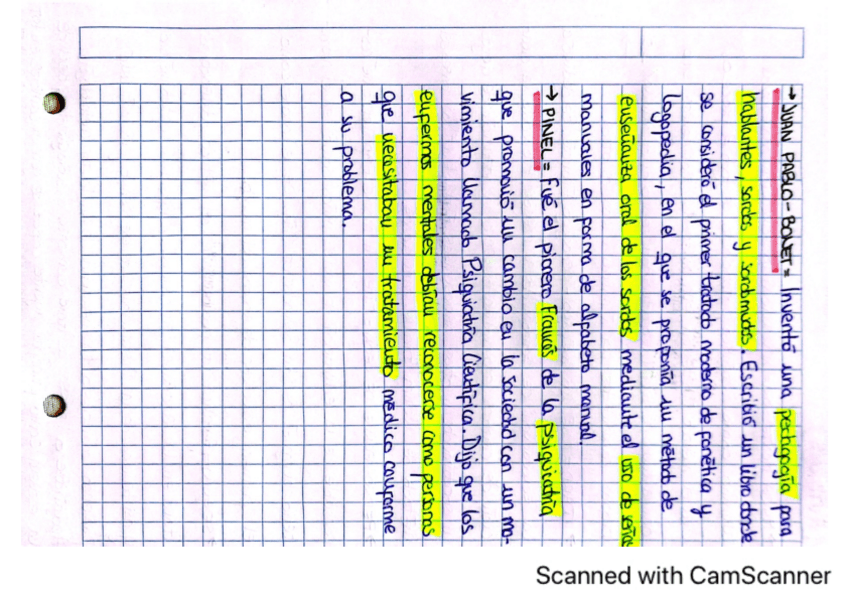 → JUAN PABLO-BONET = Inventó una pedagogía para
hablantes, sordos y sordomudos. Escribió un libro donde
se consideró el primer tratado moderno de fonética y
logopedia, en el que se proponía un método de
enseñanza oral de los sordos mediante el uso de señas
manuales en forma de alfabeto manual.
→ PINEL = Fué el pionero Francés de la psiquiatría
que promovió un cambio en la sociedad con un mo-
vimiento llamado Psiquiatría Científica. Dijo que los
enfermos mentales debían reconocerse como personas
que necesitaban un tratamiento médico conforme
a su problema.
Scanned with CamScanner